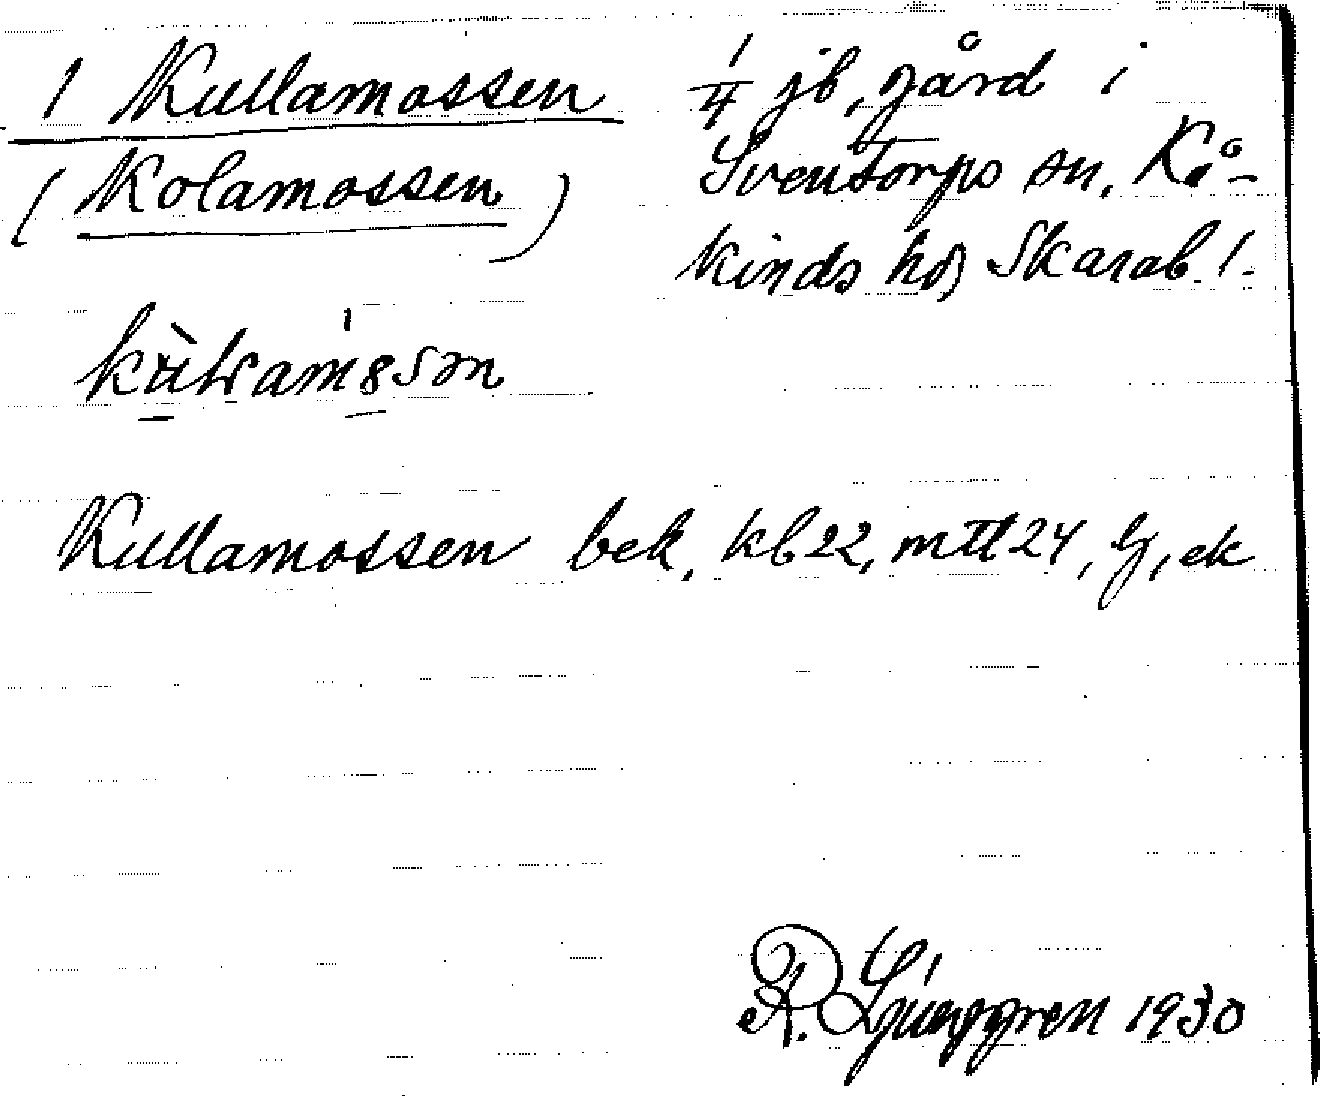 1 Kullamossen
(Kolamossen)
1/4 jb, gård i
Sventorps sn, Kå-
kinds hd, Skarab. l.
Kullamossen bek. kb 22, mtl 24, lj, ek
R. Ljunggren 1930